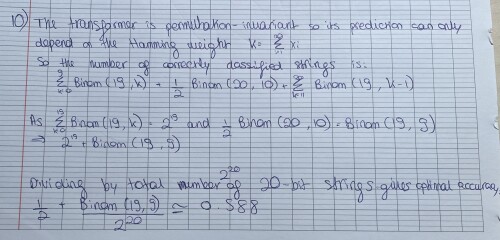 10) The transformer is permutation-invariant so its prediction can only
depend on the Hamming weight k= ∑ xi
So the number of correctly classified strings is:
∑ Binom (19, k) + 1/2 Binom (20, 10) + ∑ Binom (19, k-1)
As ∑ Binom (19, k) = 2^19 and 1/2 Binom (20, 10) = Binom (19, 9)
⇒ 2^19 + Binom (19, 9)
Dividing by total number of 2^20 20-bit strings gives optimal accuracy,
1/2 + Binom (19, 9) / 2^20 ≃ 0.588